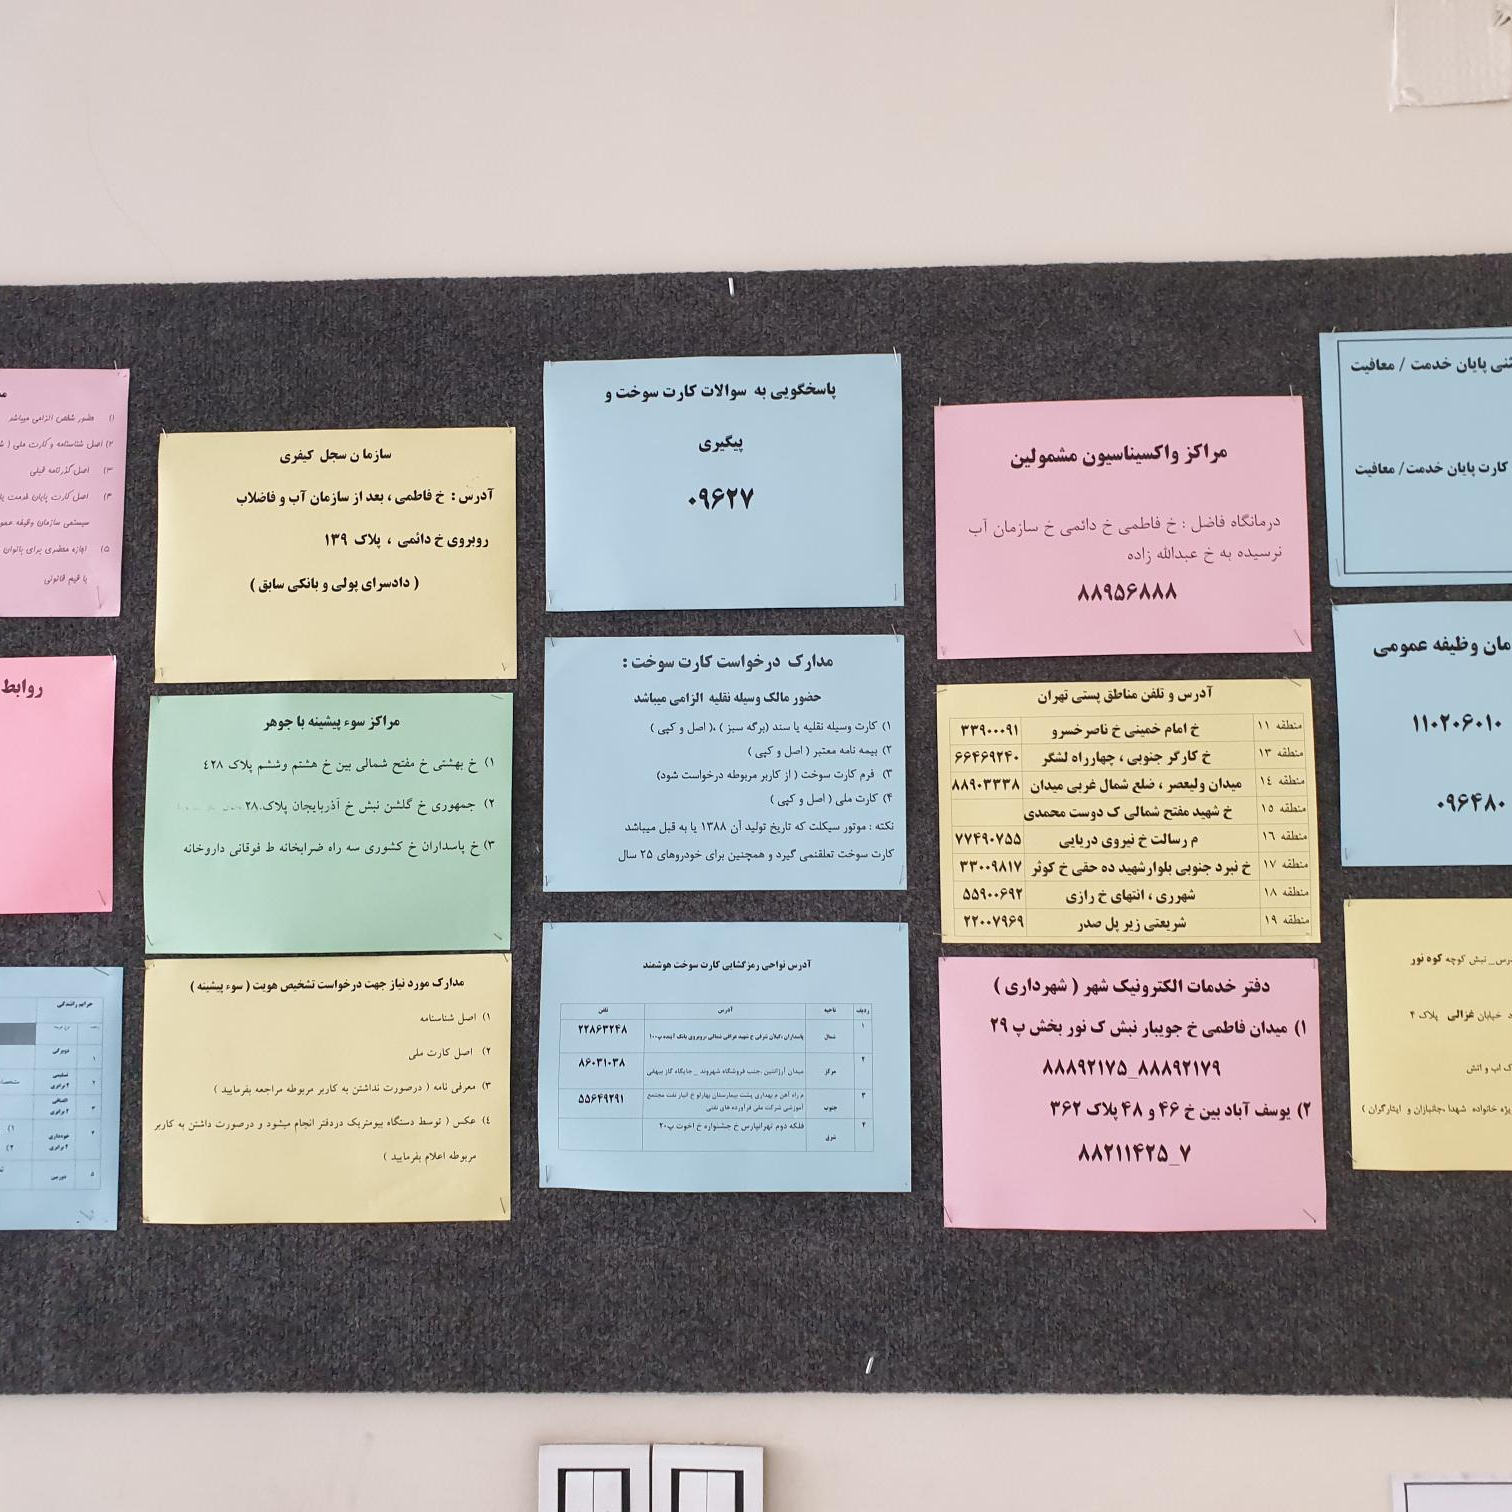 ثنی پایان خدمت / معافیت
کارت پایان خدمت/ معافیت
مان وظیفه عمومی
۱۱۰۲۰۶۰۱۰
۰۹۶۴۸۰
نبش کوچه کوه نور
خیابان غزالی پلاک ۴
ک اب و اتش
یژه خانواده شهدا ،جانبازان و ایثارگران )
مراکز واکسیناسیون مشمولین
درمانگاه فاضل : خ فاطمی خ دائمی خ سازمان آب
نرسیده به خ عبدالله زاده
۸۸۹۵۶۸۸۸
آدرس و تلفن مناطق پستی تهران
منطقه ۱۱ خ امام خمینی خ ناصرخسرو ۳۳۹۰۰۰۹۱
منطقه ۱۳ خ کارگر جنوبی ، چهارراه لشگر ۶۶۴۶۹۲۴۰
منطقه ۱٤ میدان ولیعصر ، ضلع شمال غربی میدان ۸۸۹۰۳۳۳۸
منطقه ۱۵ خ شهید مفتح شمالی ک دوست محمدی
منطقه ۱٦ م رسالت خ نیروی دریایی ۷۷۴۹۰۷۵۵
منطقه ۱۷ خ نبرد جنوبی بلوارشهید ده حقی خ کوثر ۳۳۰۰۹۸۱۷
منطقه ۱۸ شهرری ، انتهای خ رازی ۵۵۹۰۰۶۹۲
منطقه ۱۹ شریعتی زیر پل صدر ۲۲۰۰۷۹۶۹
دفتر خدمات الکترونیک شهر ( شهرداری )
۱) میدان فاطمی خ جویبار نبش ک نور بخش پ ۲۹
۸۸۸۹۲۱۷۵_۸۸۸۹۲۱۷۹
۲) یوسف آباد بین خ ۴۶ و ۴۸ پلاک ۳۶۲
۸۸۲۱۱۴۲۵_۷
پاسخگویی به سوالات کارت سوخت و
پیگیری
۰۹۶۲۷
مدارک درخواست کارت سوخت :
حضور مالک وسیله نقلیه الزامی میباشد
۱) کارت وسیله نقلیه یا سند (برگه سبز ) ،( اصل و کپی )
۲) بیمه نامه معتبر ( اصل و کپی )
۳) فرم کارت سوخت ( از کاربر مربوطه درخواست شود)
۴) کارت ملی ( اصل و کپی )
نکته : موتور سیکلت که تاریخ تولید آن ۱۳۸۸ یا به قبل میباشد
کارت سوخت تعلقنمی گیرد و همچنین برای خودروهای ۲۵ سال
آدرس نواحی رمزگشایی کارت سوخت هوشمند
ردیف ناحیه آدرس تلفن
۱ شمال پاسداران ،گیلان شرقی خ شهید عراقی شمالی ،روبروی بانک آینده پ۱۰۰ ۲۲۸۶۳۲۴۸
۲ مرکز میدان آرژانتین ،جنب فروشگاه شهروند _ جایگاه گاز بیهقی ۸۶۰۳۱۰۳۸
۳ جنوب م راه آهن م بهداری پشت بیمارستان بهارلو خ انبار نفت مجتمع آموزشی شرکت ملی فرآورده های نفتی ۵۵۶۴۹۲۹۱
۴ شرق فلکه دوم تهرانپارس خ جشنواره خ اخوت پ۲۰
سازمان سجل کیفری
آدرس : خ فاطمی ، بعد از سازمان آب و فاضلاب
روبروی خ دائمی ، پلاک ۱۳۹
( دادسرای پولی و بانکی سابق )
مراکز سوء پیشینه با جوهر
۱) خ بهشتی خ مفتح شمالی بین خ هشتم وششم پلاک ٤۲۸
۲) جمهوری خ گلشن نبش خ آذربایجان پلاک۲۸۰
۳) خ پاسداران خ کشوری سه راه ضرابخانه ط فوقانی داروخانه
مدارک مورد نیاز جهت درخواست تشخیص هویت ( سوء پیشینه )
۱) اصل شناسنامه
۲) اصل کارت ملی
۳) معرفی نامه ( درصورت نداشتن به کاربر مربوطه مراجعه بفرمایید )
٤) عکس ( توسط دستگاه بیومتریک دردفتر انجام میشود و درصورت داشتن به کاربر
مربوطه اعلام بفرمایید )
۱) حضور شخص الزامی میباشد
۲) اصل شناسنامه و کارت ملی
۳) اصل گذرنامه قبلی
۴) اصل کارت پایان خدمت
سیستمی سازمان وظیفه عمو
۵) اجازه محضری برای بانوان
یا قیم قانونی
روابط
جرایم رانندگی